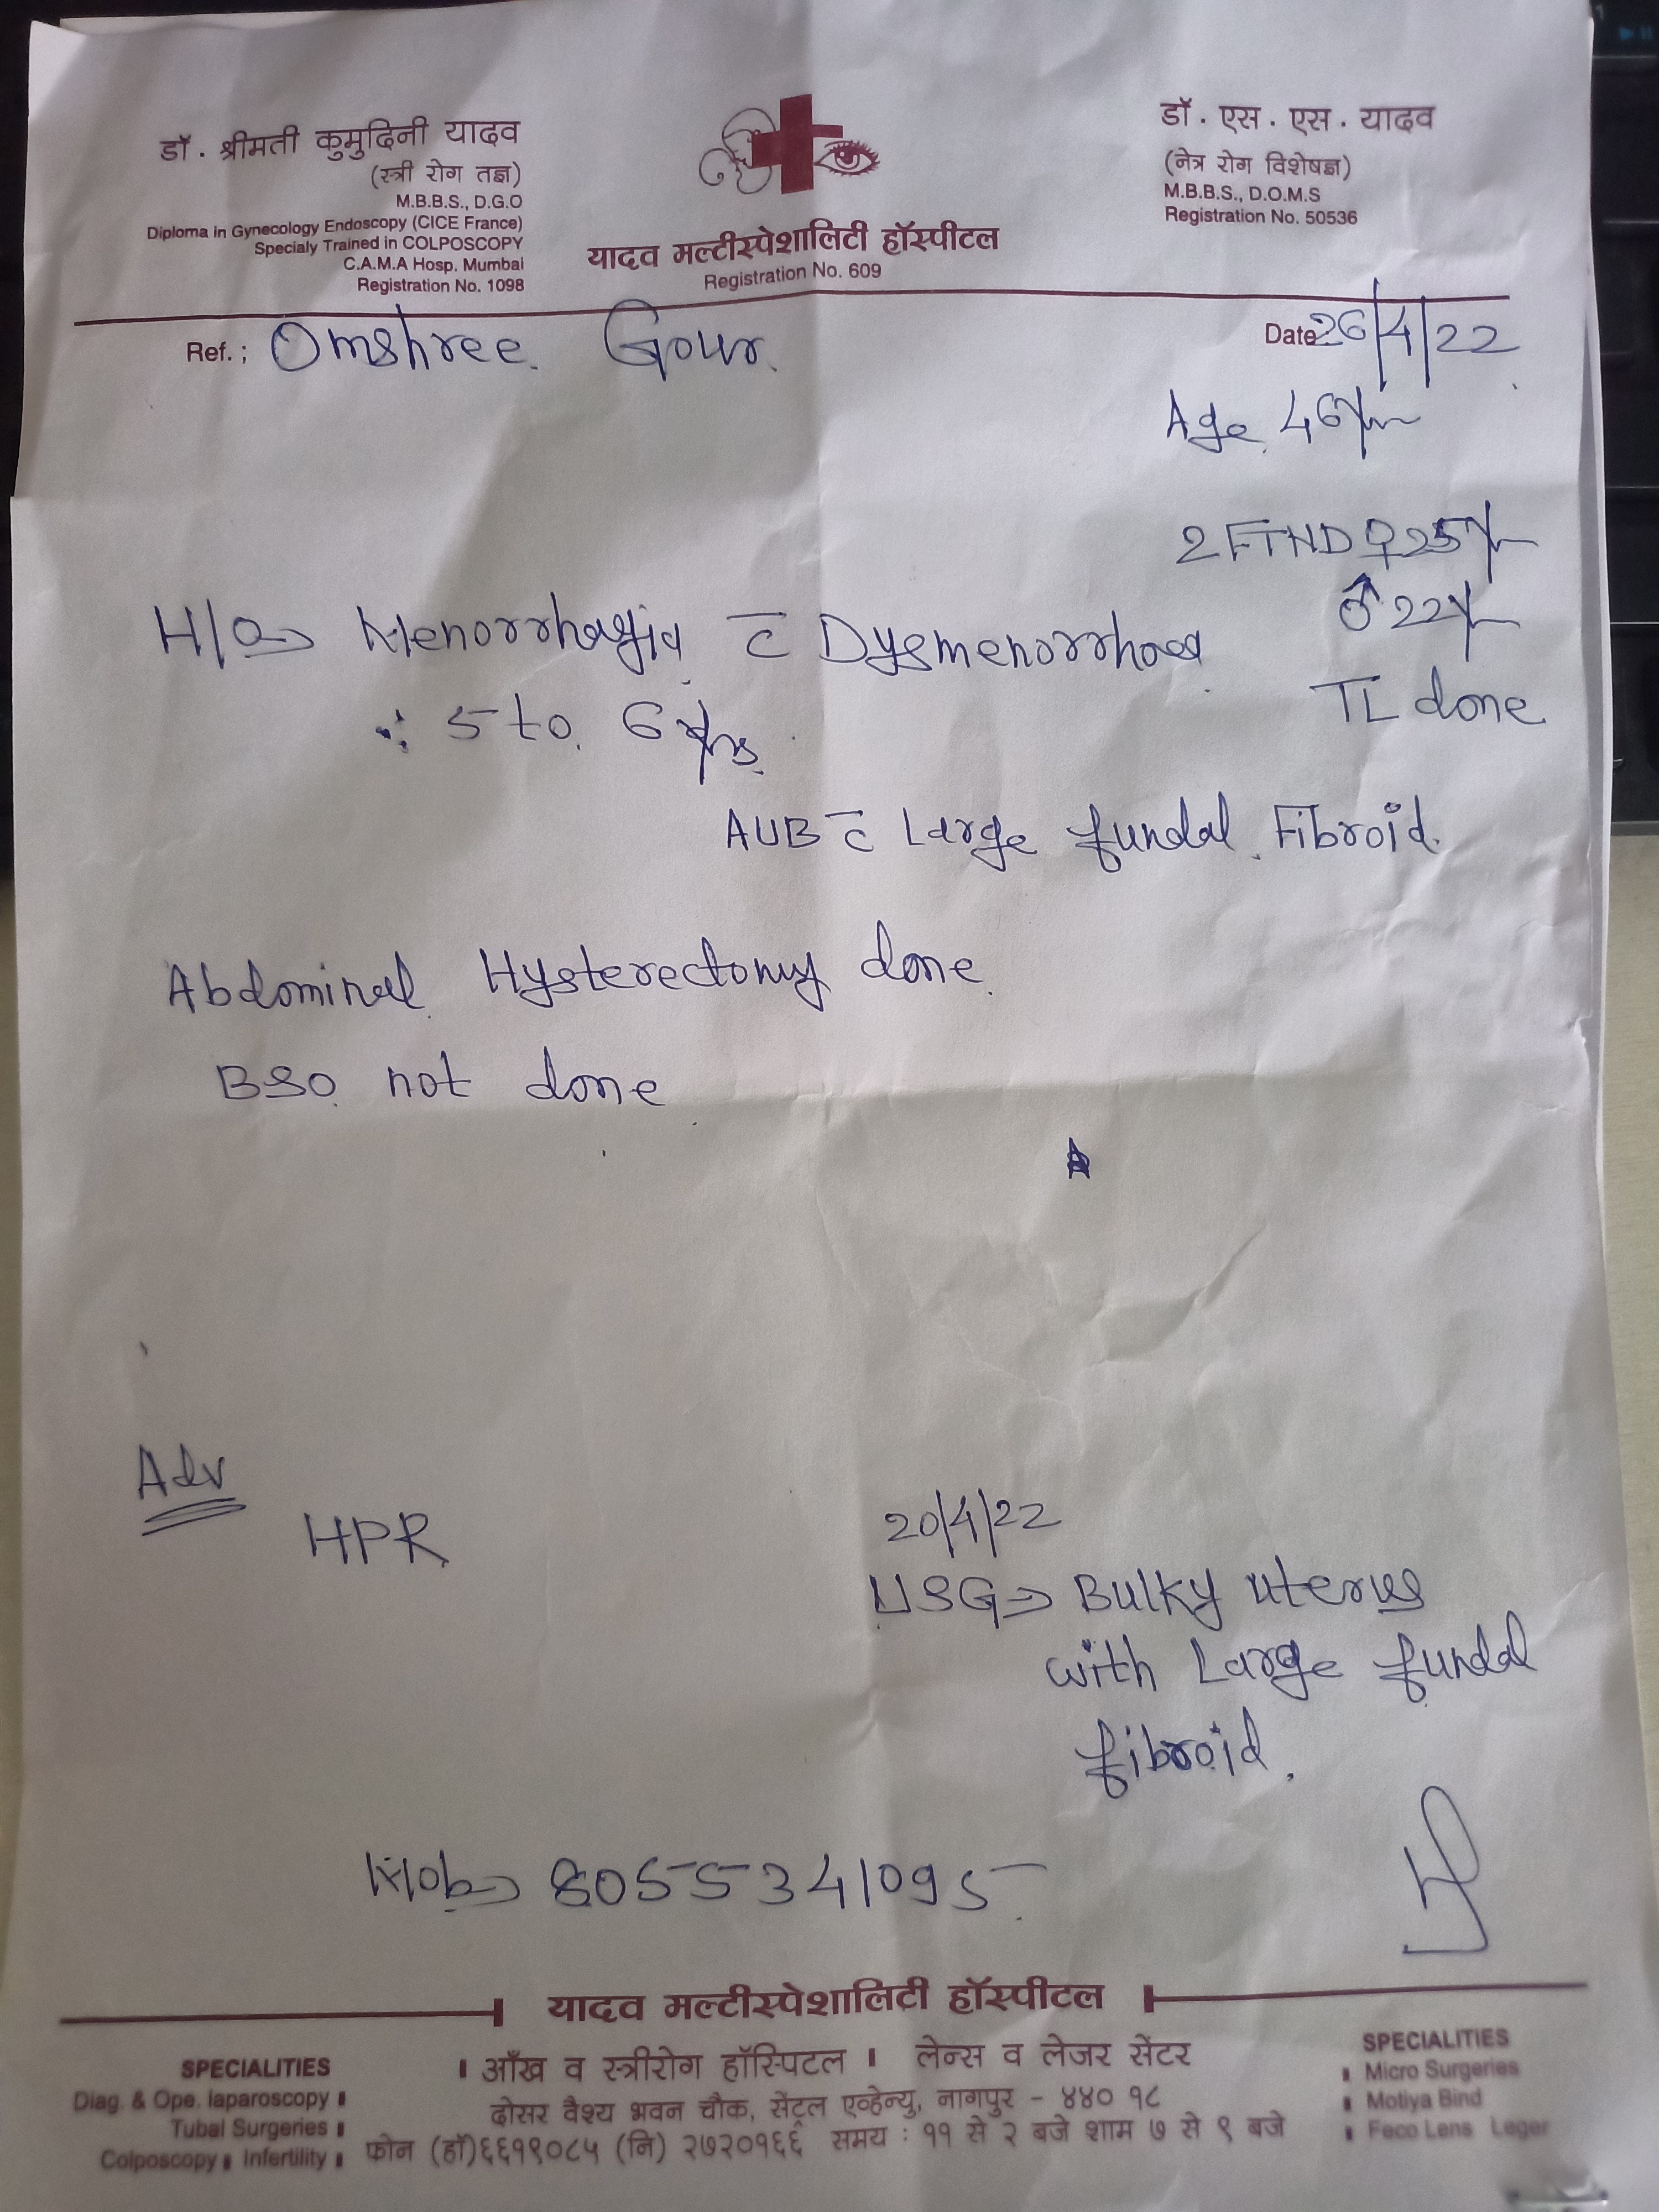 डॉ. श्रीमती कुमुदिनी यादव
(स्त्री रोग तज्ञ)
M.B.B.S., D.G.O
Diploma in Gynecology Endoscopy (CICE France)
Specialy Trained in COLPOSCOPY
C.A.M.A Hosp. Mumbai
Registration No. 1098
यादव मल्टीस्पेशालिटी हॉस्पीटल
Registration No. 609
डॉ. एस. एस. यादव
(नेत्र रोग विशेषज्ञ)
M.B.B.S., D.O.M.S
Registration No. 50536
Ref. ; Omshree Gour
Date 26/4/22
Age 46yr
2 FTND ♀ 25yr
♂ 22yr
TL done
H/O → Menorrhagia c̄ Dysmenorrhoea
∵ 5 to 6 yrs
AUB c̄ Large fundal Fibroid.
Abdominal Hysterectomy done
BSO not done
Adv
HPR
20/4/22
USG → Bulky uterus
with Large fundal
fibroid.
Mob → 8055341095
यादव मल्टीस्पेशालिटी हॉस्पीटल
SPECIALITIES
Diag. & Ope. laparoscopy
Tubal Surgeries
Colposcopy Infertility
आँख व स्त्रीरोग हॉस्पिटल । लेन्स व लेजर सेंटर
दोसर वैश्य भवन चौक, सेंट्रल एव्हेन्यु, नागपुर - ४४० १८
फोन (हॉ)६६१९०८५ (नि) २७२०१६६ समय : ११ से २ बजे शाम ७ से ९ बजे
SPECIALITIES
Micro Surgeries
Motiya Bind
Feco Lens Leger